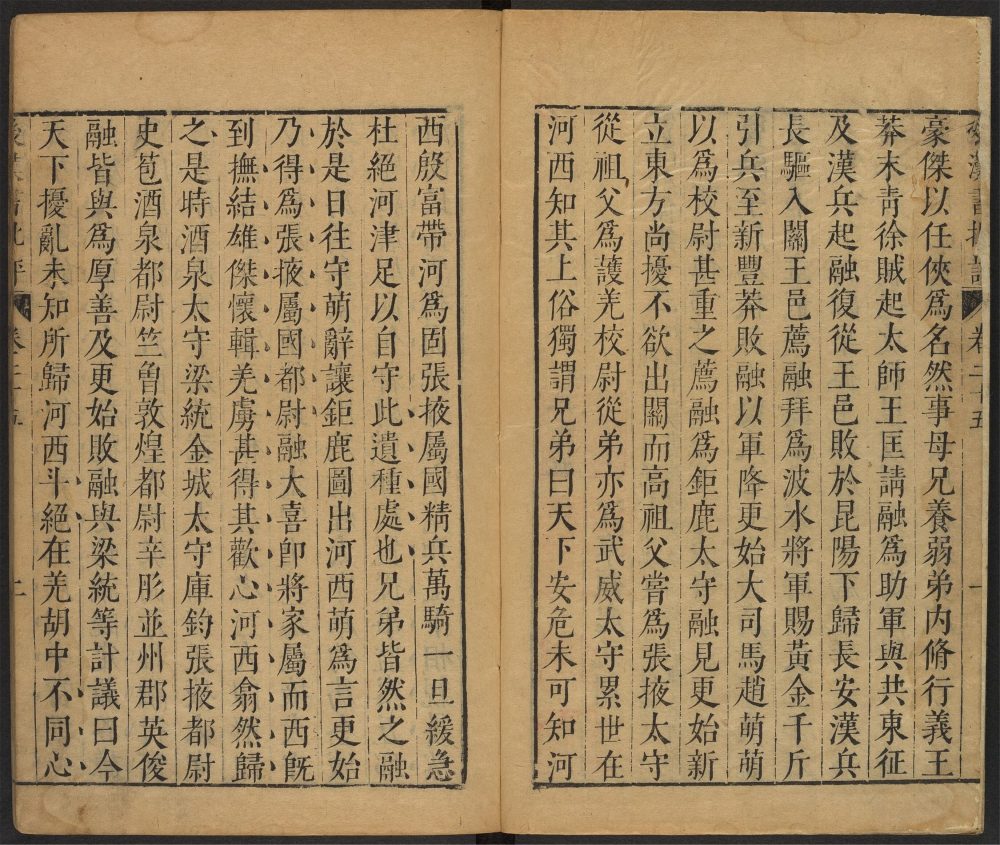 豪傑以任俠爲名然事母兄養弱弟內脩行義王
莽末靑徐賊起太師王匡請融爲助軍與共東征
及漢兵起融復從王邑敗於昆陽下歸長安漢兵
長驅入關王邑薦融拜爲波水將軍賜黃金千斤
引兵至新豐莽敗融以軍降更始大司馬趙萌萌
以爲校尉甚重之薦融爲鉅鹿太守融見更始新
立東方尚擾不欲出關而高祖父嘗爲張掖太守
從祖父爲護羌校尉從弟亦爲武威太守累世在
河西知其上俗獨謂兄弟曰天下安危未可知河
西殷富帶河爲固張掖屬國精兵萬騎一旦緩急
杜絕河津足以自守此遺種處也兄弟皆然之融
於是日往守萌辭讓鉅鹿圖出河西萌爲言更始
乃得爲張掖屬國都尉融大喜卽將家屬而西旣
到撫結雄傑懷輯羌虜甚得其歡心河西翕然歸
之是時酒泉太守梁統金城太守庫鈞張掖都尉
史苞酒泉都尉竺魯敦煌都尉辛肜並州郡英俊
融皆與爲厚善及更始敗融與梁統等計議曰今
天下擾亂未知所歸河西斗絕在羌胡中不同心